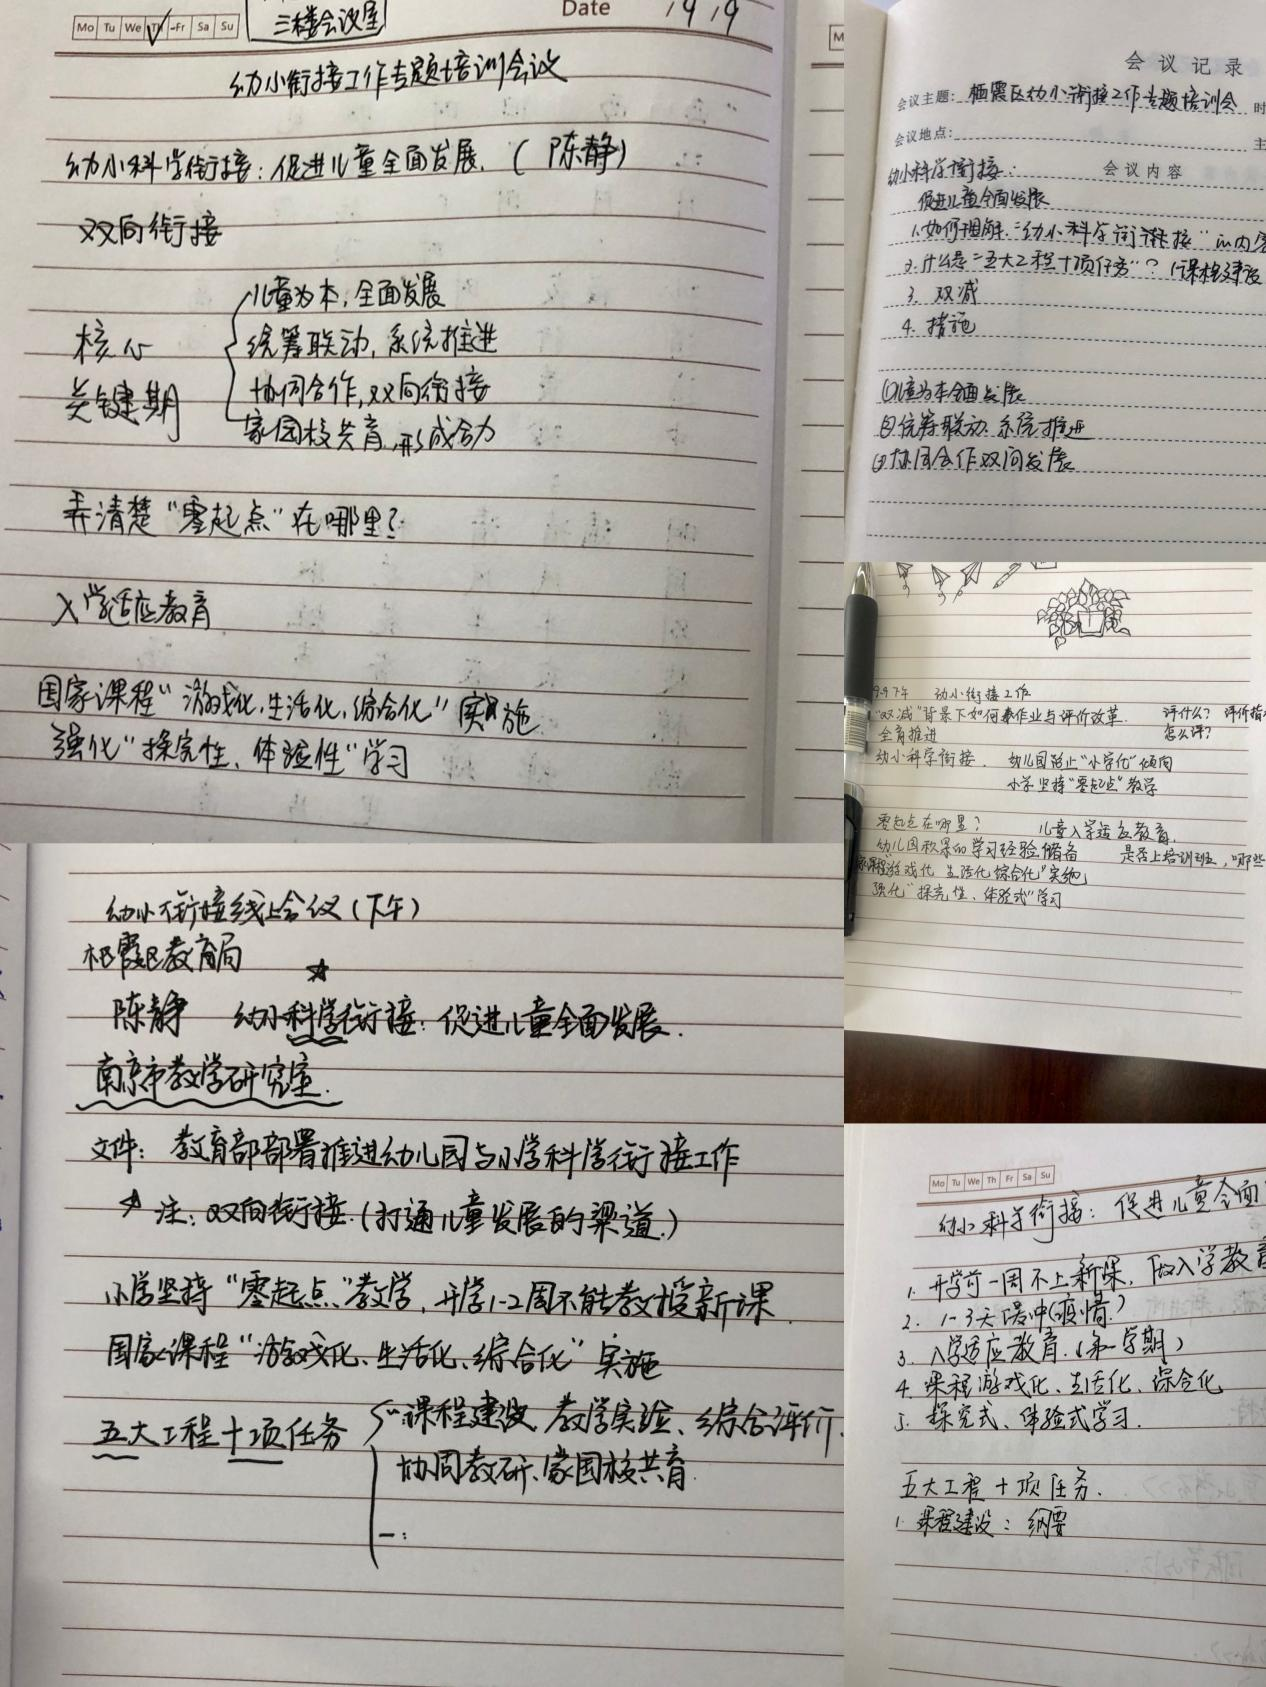 Mo Tu We Th Fr Sa Su
三楼会议室
Date
幼小衔接工作专题培训会议
幼小科学衔接：促进儿童全面发展.（陈静）
双向衔接
核心
关键期
儿童为本，全面发展
统筹联动，系统推进
协同合作，双向衔接
家园校共育，形成合力
弄清楚“零起点”在哪里？
入学适应教育
国家课程“游戏化、生活化、综合化”实施
强化“探究性、体验性”学习
幼小衔接线上会议（下午）
栖霞区教育局
陈静 幼小科学衔接：促进儿童全面发展.
南京市教学研究室.
文件：教育部部署推进幼儿园与小学科学衔接工作
注：双向衔接.（打通儿童发展的渠道.）
小学坚持“零起点”教学，开学1-2周不能教授新课.
国家课程“游戏化、生活化、综合化”实施
五大工程十项任务
课程建设、教学实验、综合评价、
协同教研、家园校共育.
一：
会议记录
会议主题：栖霞区幼小衔接工作专题培训会 时
会议地点： 主
会议内容
幼小科学衔接：
促进儿童全面发展
1.如何理解“幼小科学衔接”的内
2.什么是“五大工程十项任务”？（课程建设
3. 双减
4. 措施
①儿童为本全面发展
②统筹联动 系统推进
③协同合作双向发展
9.9下午 幼小衔接工作
“双减”背景下如何 作业与评价改革. 评什么？ 评价指
全育推进 怎么评？
幼小科学衔接. 幼儿园防止“小学化”倾向
小学坚持“零起点”教学
零起点在哪里？ 儿童入学适应教育.
幼儿园积累的学习经验储备 是否上培训班，哪些
家课程游戏化 生活化 综合化”实施
强化“探究性、体验式”学习
Mo Tu We Th Fr Sa Su
幼小科学衔接：促进儿童全面
1. 开学前一周不上新课，做入学教育
2. 1-3天缓冲（疫情）
3. 入学适应教育.（第一学期）
4. 课程游戏化、生活化、综合化
5. 探究式、体验式学习.
五大工程十项任务.
1. 课程建设：纲要